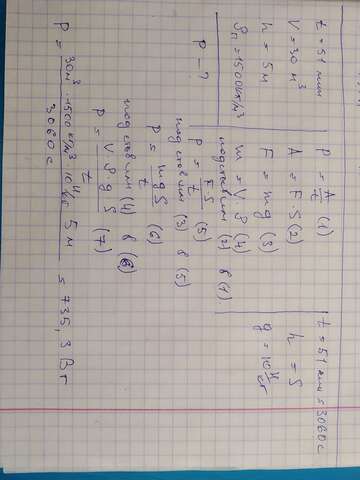 t = 51 мин
V = 30 м³
h = 5 м
ρп = 1500 кг/м³
P - ?
P = A/t (1)
A = F S (2)
F = mg (3)
m = V · ρ (4)
подставим (2) в (1)
P = FS/t (5)
подставим (3) в (5)
P = mgS/t (6)
подставим (4) в (6)
P = V·ρ·g·S/t (7)
t = 51 мин = 3060 с
h = S
g = 10 Н/кг
P = 30м³ · 1500 кг/м³ · 10 Н/кг · 5 м / 3060 с ≤ 735,3 Вт